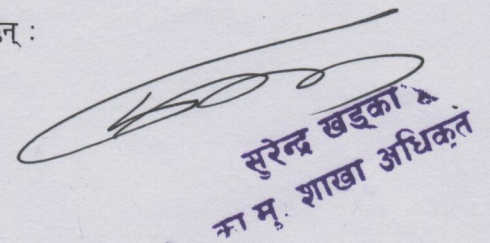 न् :
सुरेन्द्र खड्का
का मु. शाखा अधिकृत